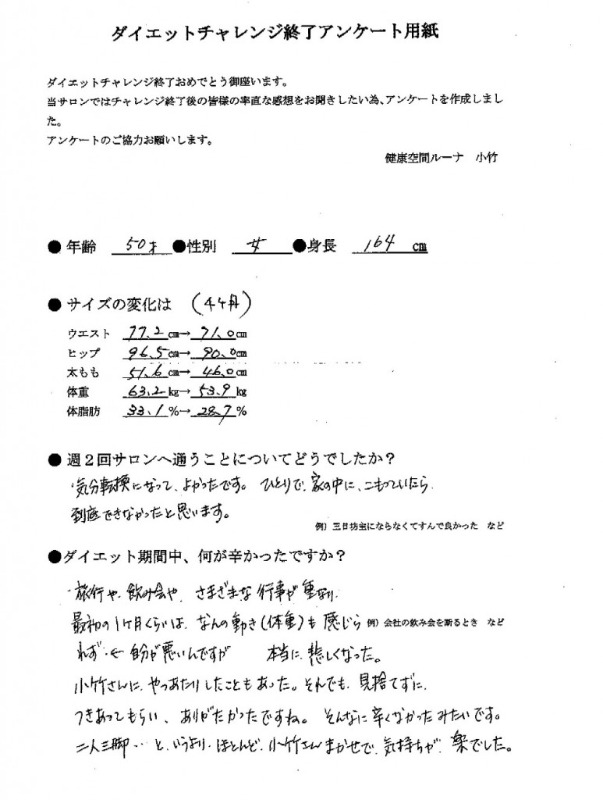 ダイエットチャレンジ終了アンケート用紙
ダイエットチャレンジ終了おめでとう御座います。
当サロンではチャレンジ終了後の皆様の率直な感想をお聞きしたい為、アンケートを作成しまし
た。
アンケートのご協力お願いします。
健康空間ルーナ 小竹
●年齢 50才 ●性別 女 ●身長 164 cm
●サイズの変化は (4ヶ月)
ウエスト 77.2cm→71.0cm
ヒップ 96.5cm→90.0cm
太もも 51.6cm→46.0cm
体重 63.2kg→53.9kg
体脂肪 33.1%→28.7%
●週2回サロンへ通うことについてどうでしたか?
気分転換になって、よかったです。ひとりで、家の中に、こもっていたら
到底できなかったと思います。
例)三日坊主にならなくてすんで良かった など
●ダイエット期間中、何が辛かったですか?
旅行や、飲み会や、さまざまな行事が重なり、
最初の1ヶ月くらいは、なんの動き(体重)も感じら 例)会社の飲み会を断るとき など
れず・・ 自分が悪いんですが 本当に、悲しくなった。
小竹さんに、やつあたりしたこともあった。それでも、見捨てずに、
つきあってもらい、ありがたかったですね。そんなに辛くなかったみたいです。
二人三脚・・と、いうより、ほとんど、小竹さんまかせで、気持ちが、楽でした。